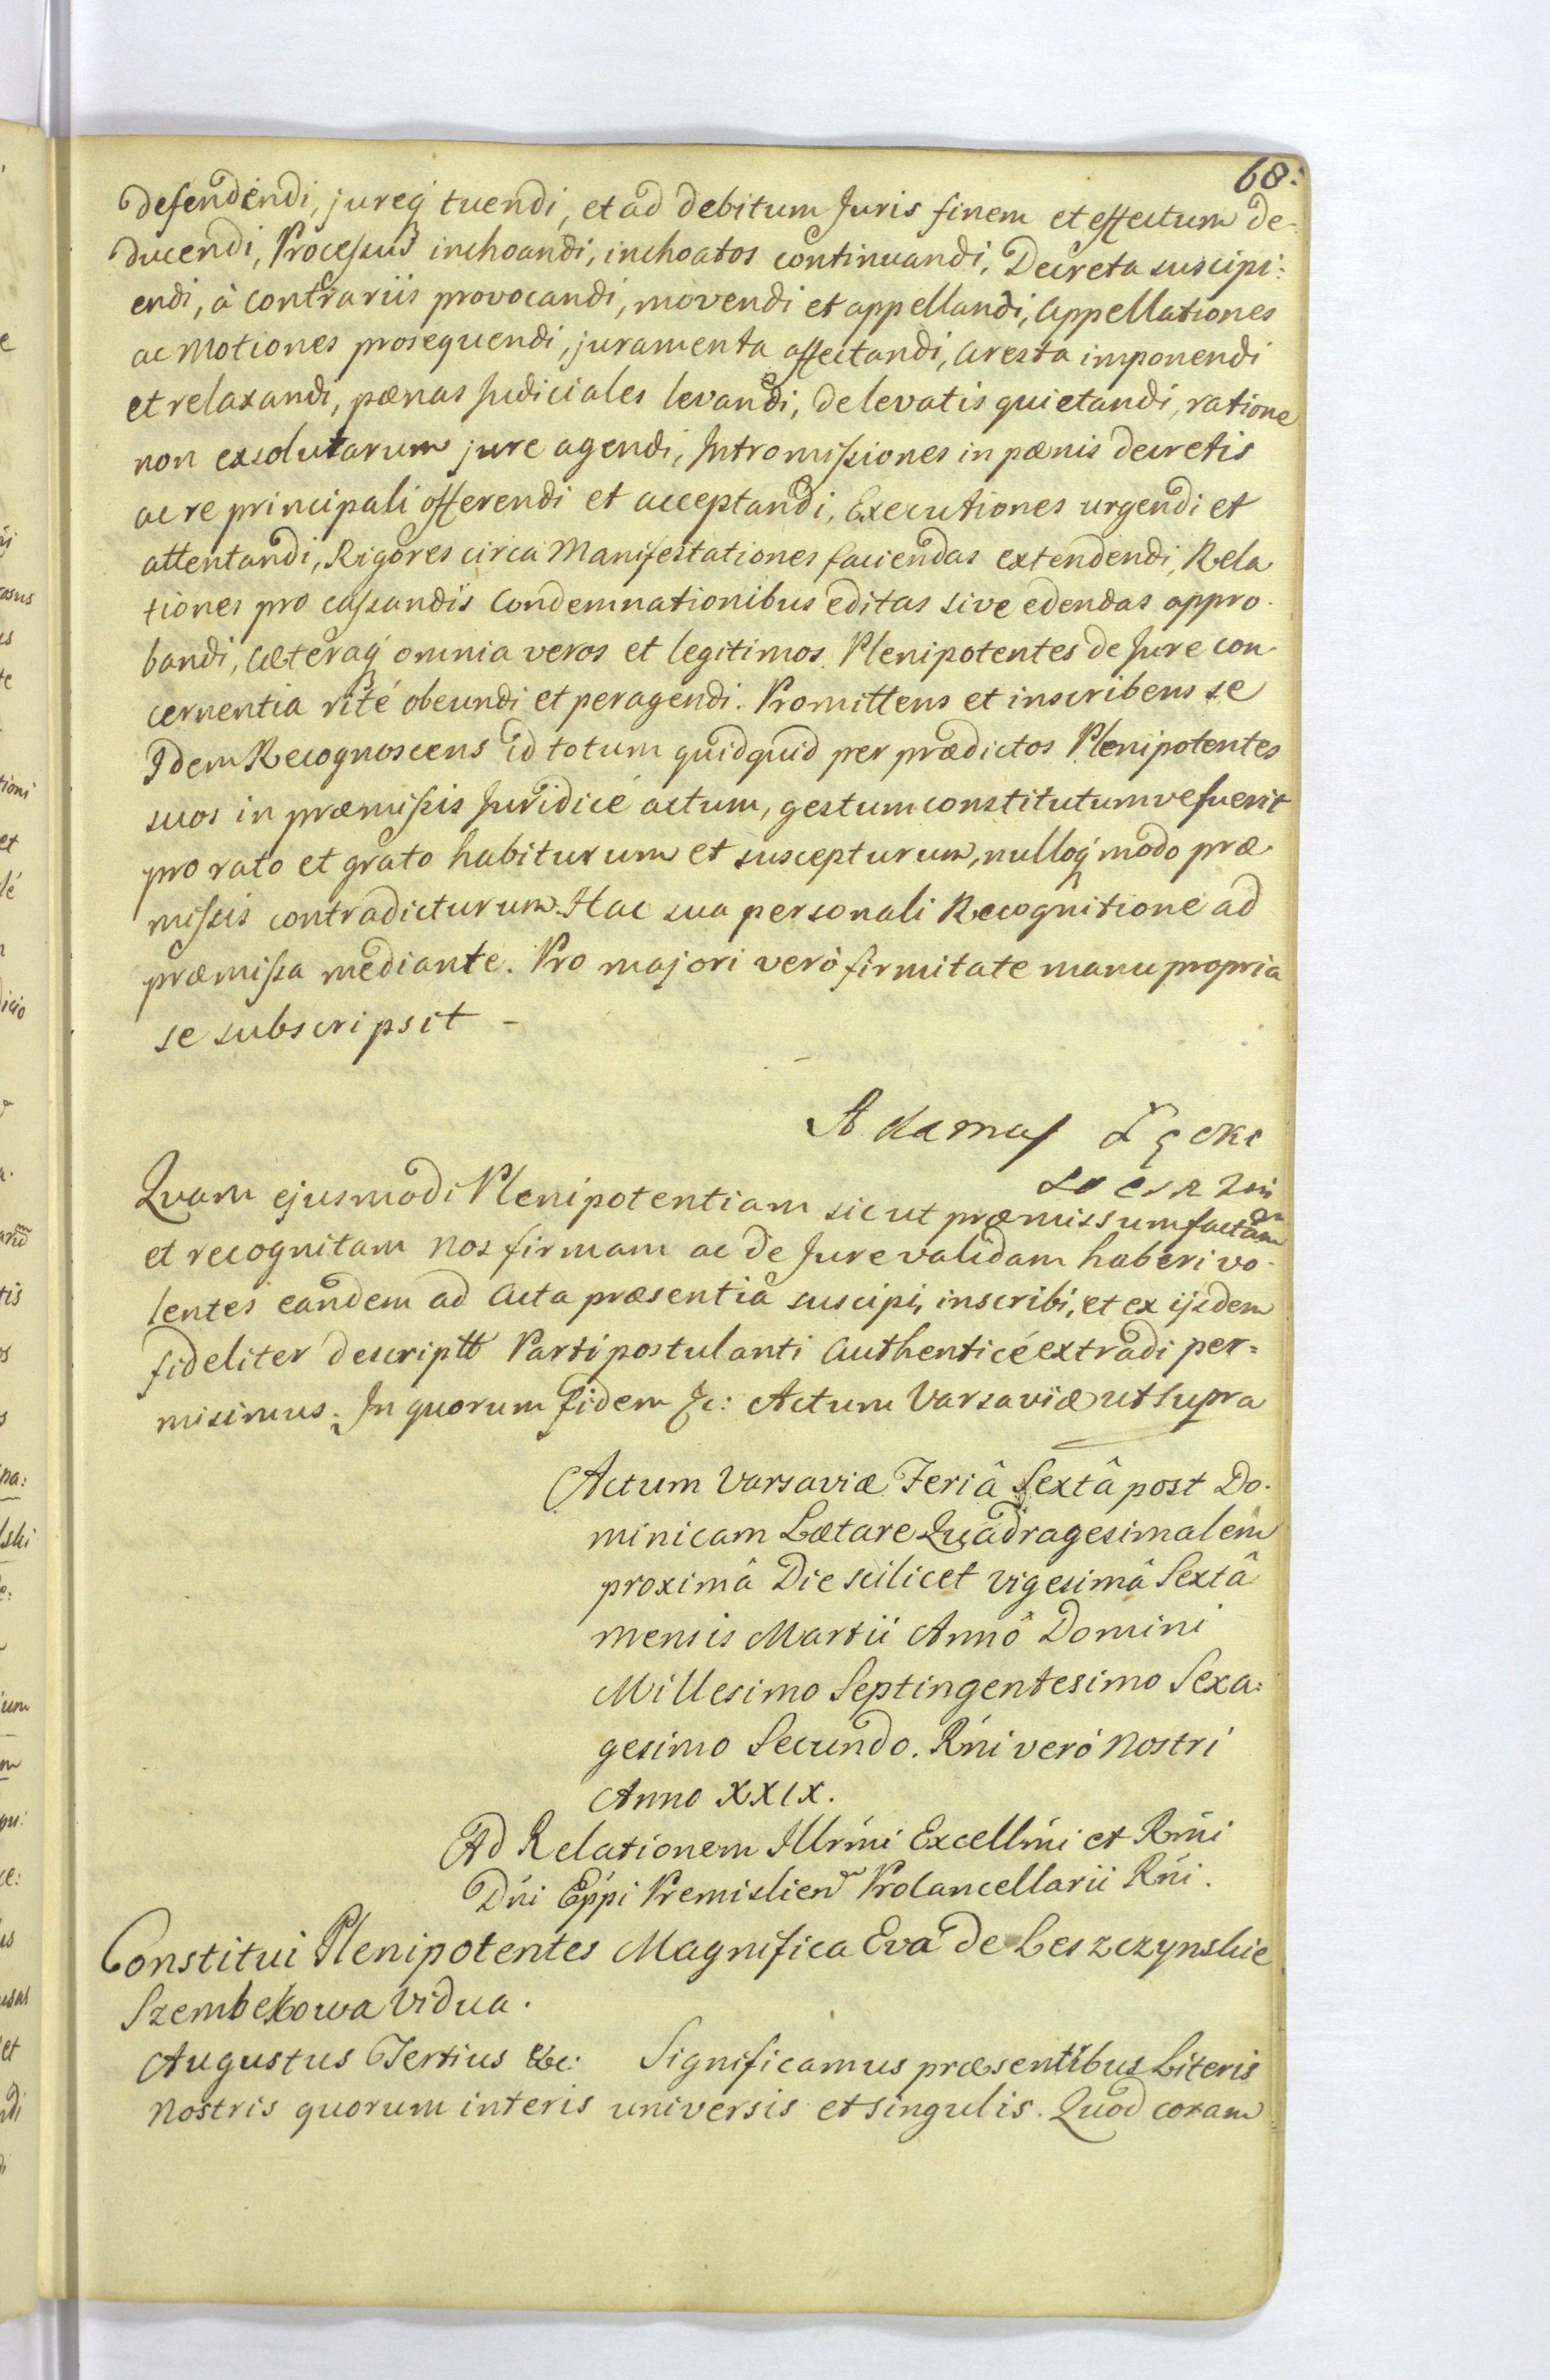 68.
defendendi, jureq́ tuendi, et ad debitum Juris finem et effectum de-
ducendi, Processus inchoandi, inchoatos continuandi, Decreta suscipi:
endi, à contrariis provocandi, movendi et appellandi, Appellationes
ac Motiones prosequendi, juramenta affectandi, Aresta imponendi
et relaxandi, pænas Judiciales levandi, de levatis quietandi, ratione
non exsolutarum jure agendi, Intromissiones in pænis decretis
ac re principali offerendi et acceptandi, Executiones urgendi et
attentandi, Rigores circa Manifestationes faciendas extendendi, Rela
tiones pro cassandis Condemnationibus editas sive edendas appro-
bandi, Cæteraq́ omnia veros et legitimos Plenipotentes de Jure con-
cernentia rité obeundi et peragendi. Promittens et inscribens se
Idem Recognoscens id totum quidquid per prædictos Plenipotentes
suos in præmissis Juridicé actum, gestum constitutumve fuerit
pro rato et grato habiturum et suscepturum, nulloq́ modo præ-
missis contradicturum. Hac sua personali Recognitione ad
præmissa mediante. Pro majori veró firmitate manu propria
se subscripsit -
Adamus Łęcki
Quam ejusmodi Plenipotentiam sicut præmissum factam
et recognitam Nos firmam ac de Jure validam haberi vo-
lentes eandem ad Acta præsentia suscipi, inscribi, et ex ijsdem
fideliter descriptt Parti postulanti Authenticé extradi per=
misimus. In quorum fidem &c: Actum Varsaviæ ut supra
Actum Varsaviæ Feriâ Sextâ post Do-
minicam Lætare Quadragesimalem
proximâ Die scilicet vigesimâ Sextâ
mensis Martii Annô Domini
Millesimo Septingentesimo Sexa:
gesimo Secundo. Rńi veró Nostri
Anno XXIX.
Ad Relationem Illrḿi Excellḿi et Rḿi
Dńi Eṕpi Premislien Procancellarii Rńi.
Constitui Plenipotentes Magnifica Eva de Leszczynskie
Szembekowa Vidua.
Augustus Tertius &c: Significamus præsentibus Literis
Nostris quorum interis universis et singulis. Quod coram